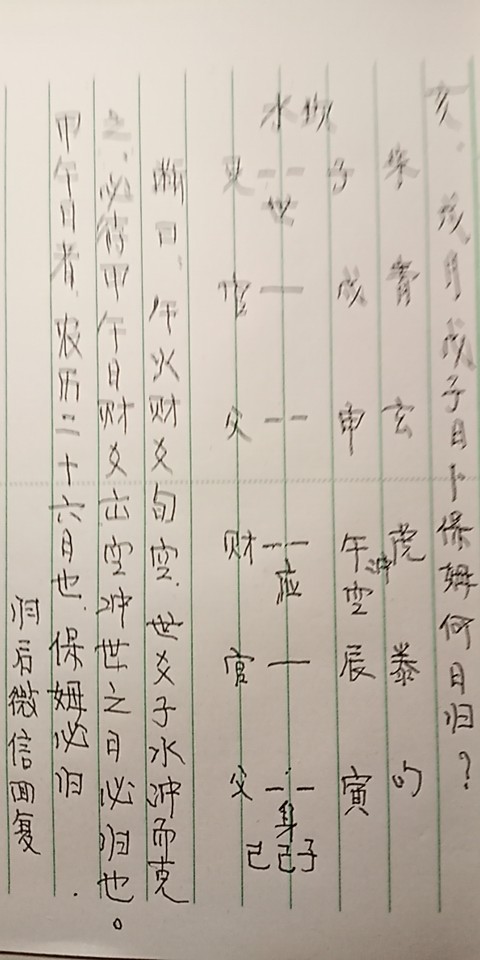 亥.戌月戊子日卜保姆何日归?
朱 青 玄 虎 的
子 戌 申 午空冲 辰 寅
水
兄 -- 世 官 — 父 -- 财 -- 应 官 — 父 -- 身 子
断曰:午火财爻旬空.世爻子水冲而克
之,必待甲午日财爻出空冲世之日必归也。
甲午日者,农历二十六日也.保姆必归.
归后微信回复